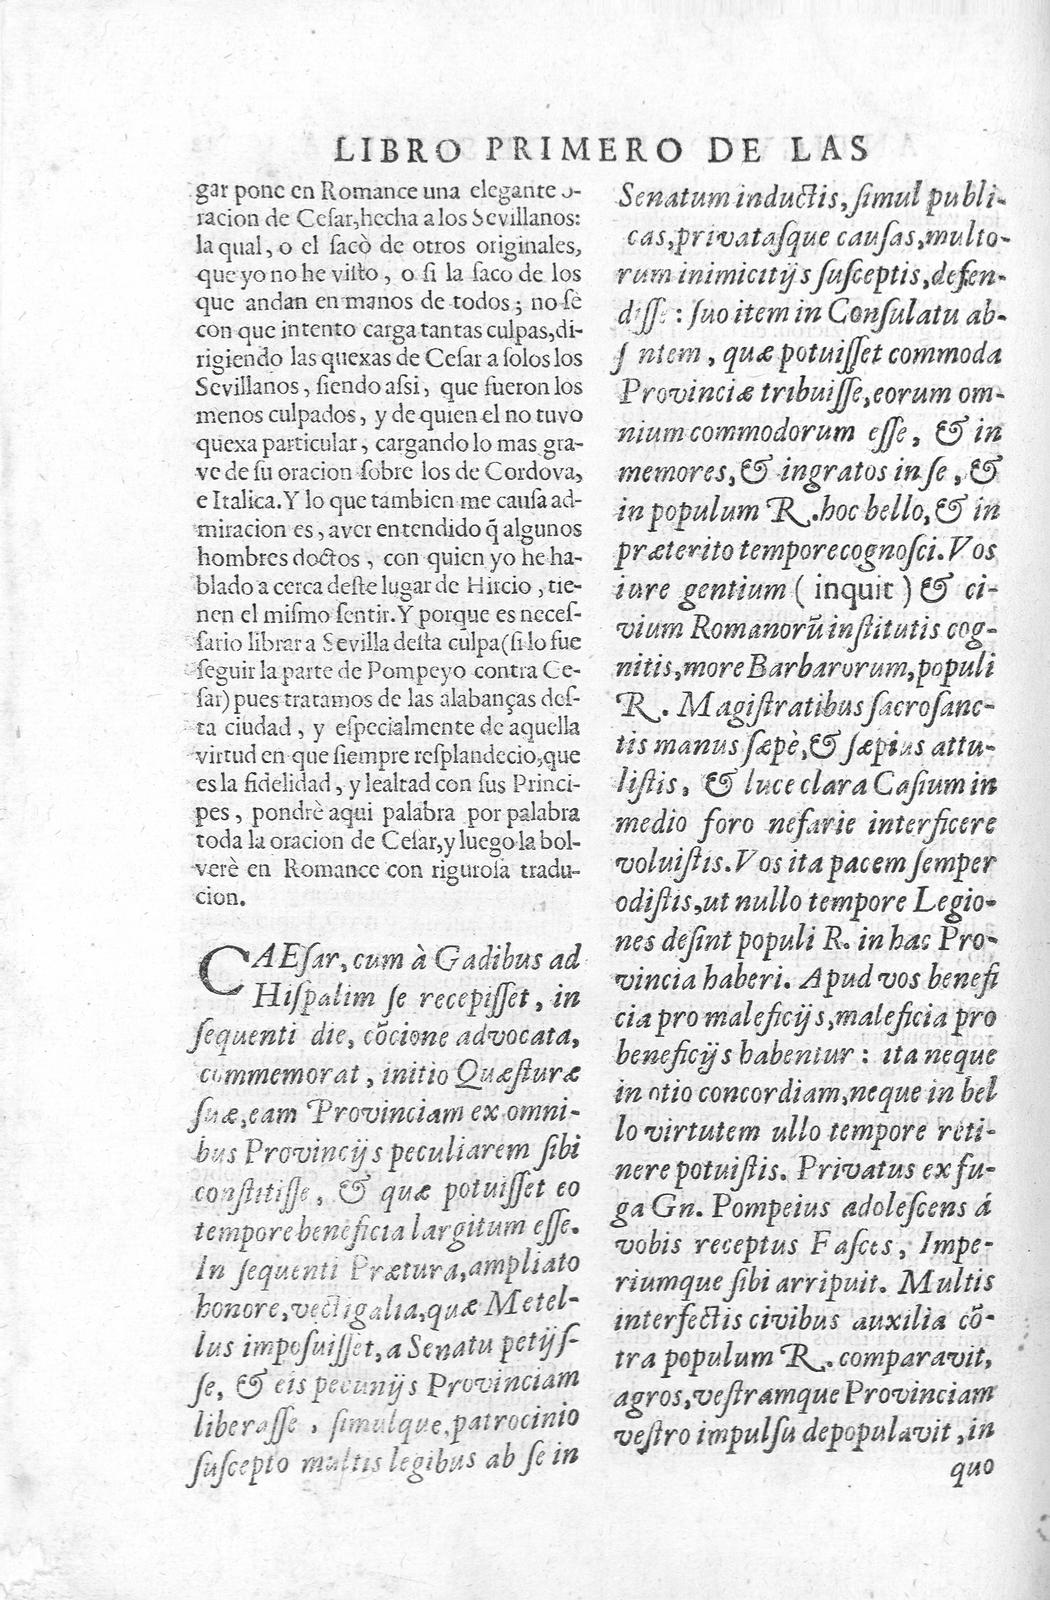 LIBRO PRIMERO DE LAS
gar pone en Romance una elegante o-
racion de Ceſar, hecha a los Sevillanos:
la qual, o el ſacò de otros originales,
que yo no he viſto, o ſi la ſaco de los
que andan en manos de todos; no sè
con que intento carga tantas culpas, di-
rigiendo las quexas de Ceſar a ſolos los
Sevillanos, ſiendo aſsi, que fueron los
menos culpados, y de quien el no tuvo
quexa particular, cargando lo mas gra-
ve de ſu oracion ſobre los de Cordova,
e Italica. Y lo que tambien me cauſa ad-
miracion es, aver entendido q̃ algunos
hombres doctos, con quien yo he ha-
blado a cerca deſte lugar de Hircio, tie-
nen el miſmo ſentir. Y porque es neceſ-
ſario librar a Sevilla deſta culpa (ſi lo fue
ſeguir la parte de Pompeyo contra Ce-
ſar) pues tratamos de las alabanças deſ-
ta ciudad, y eſpecialmente de aquella
virtud en que ſiempre reſplandeciò, que
es la fidelidad, y lealtad con ſus Princi-
pes, pondrè aqui palabra por palabra
toda la oracion de Ceſar, y luego la bol-
verè en Romance con riguroſa tradu-
cion.
CAESar, cum à Gadibus ad
Hiſpalim ſe recepiſſet, in
ſequenti die, cõcione advocata,
commemorat, initio Quæſturæ
ſuæ, eam Provinciam ex omni-
bus Provincijs peculiarem ſibi
conſtitiſſe, & quæ potuiſſet eo
tempore beneficia largitum eſſe.
In ſequenti Prætura, ampliato
honore, vectigalia, quæ Metel-
lus impoſuiſſet, a Senatu petijſ-
ſe, & eis pecunijs Provinciam
liberaſſe, ſimulque, patrocinio
ſuſcepto multis legibus ab ſe in
Senatum inductis, ſimul publi-
cas, privataſque cauſas, multo-
rum inimicitijs ſuſceptis, defen-
diſſe: ſuo item in Conſulatu ab-
ſ ntem, quæ potuiſſet commoda
Provinciæ tribuiſſe, eorum om-
nium commodorum eſſe, & in
memores, & ingratos in ſe, &
in populum R. hoc bello, & in
præterito tempore cognoſci. Vos
iure gentium ( inquit ) & ci-
vium Romanorũ inſtitutis cog-
nitis, more Barbarorum, populi
R. Magiſtratibus ſacroſanc-
tis manus ſæpè, & ſæpius attu-
liſtis, & luce clara Caſium in
medio foro nefarie interficere
voluiſtis. Vos ita pacem ſemper
odiſtis, ut nullo tempore Legio-
nes deſint populi R. in hac Pro-
vincia haberi. Apud vos benefi
cia pro maleficijs, maleficia pro
beneficijs habentur: ita neque
in otio concordiam, neque in bel
lo virtutem ullo tempore reti-
nere potuiſtis. Privatus ex fu-
ga Gn. Pompeius adoleſcens á
vobis receptus Faſces, Impe-
riumque ſibi arripuit. Multis
interfectis civibus auxilia cõ-
tra populum R. comparavit,
agros, veſtramque Provinciam
veſtro impulſu depopulavit, in
quo